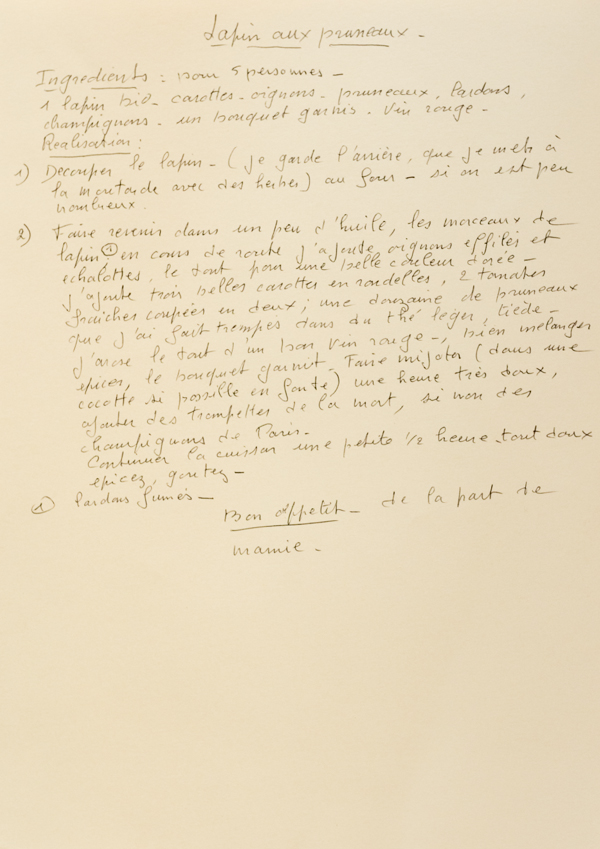 Lapin aux pruneaux -
Ingrédients : pour 5 personnes -
1 lapin bio - carottes - oignons - pruneaux, lardons,
champignons - un bouquet garnis - vin rouge -
Réalisation :
1) Découper le lapin - (je garde l'arrière, que je mets à
la moutarde avec des herbes) au four - si on est peu
nombreux.
2) Faire revenir dans un peu d'huile, les morceaux de
lapin ① en cours de route j'ajoute oignons effilés et
echalottes, le tout pour une belle couleur dorée -
j'ajoute trois belles carottes en rondelles, 2 tomates
fraiches coupées en deux ; une douzaine de pruneaux
que j'ai fait trempés dans du thé léger, tiède -
j'arose le tout d'un bon vin rouge -, bien mélanger
épices, le bouquet garnit. Faire mijoter (dans une
cocotte si possible en fonte) une heure très doux,
ajouter des trompettes de la mort, si non des
champignons de Paris -
Continuer la cuisson une petite 1/2 heure - tout doux
épicez, goutez -
① lardons fumés -
Bon appetit - de la part de
mamie -